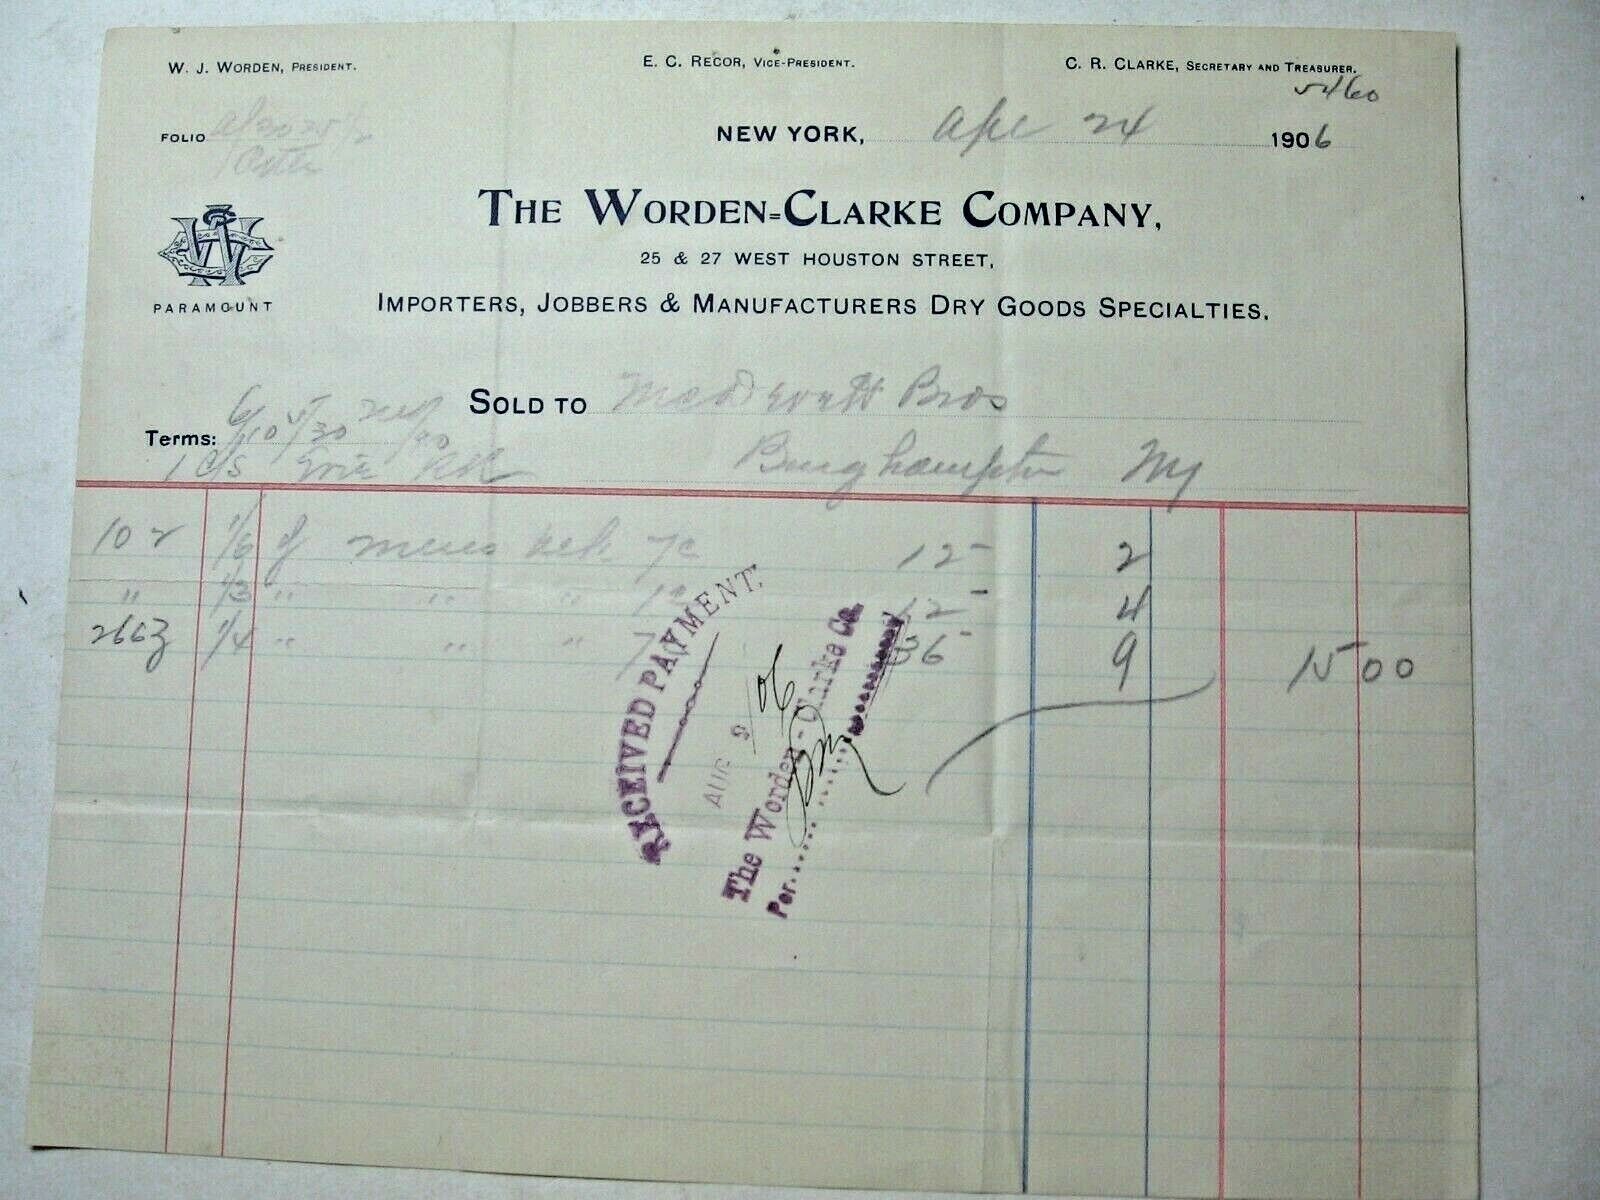 W. J. WORDEN, PRESIDENT. E. C. RECOR, VICE-PRESIDENT. C. R. CLARKE, SECRETARY AND TREASURER.
5460
FOLIO
NEW YORK, Apl 24 1906
THE WORDEN=CLARKE COMPANY,
25 & 27 WEST HOUSTON STREET,
PARAMOUNT
IMPORTERS, JOBBERS & MANUFACTURERS DRY GOODS SPECIALTIES.
SOLD TO Bros
Terms: 6/10 5/30
1 C/S Erie RR Binghampton NY
102 1/6 12 2
" 1/3 " " " 12 4
2663 1/4 " " " 36 9 15 00
RECEIVED PAYMENT.
AUG 9/06
The Worden-Clarke Co.
Per